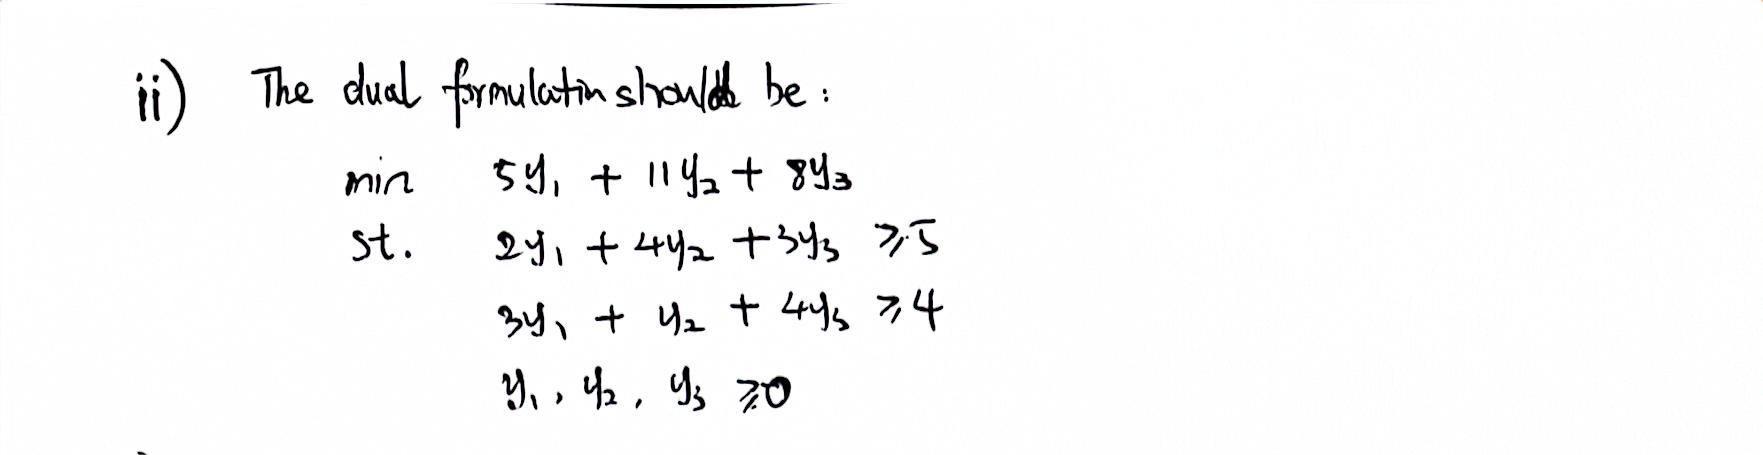 ii) The dual formulatin should be :
min 5y₁ + 11y₂ + 8y₃
st. 2y₁ + 4y₂ + 3y₃ ⩾ 5
3y₁ + y₂ + 4y₃ ⩾ 4
y₁, y₂, y₃ ⩾ 0